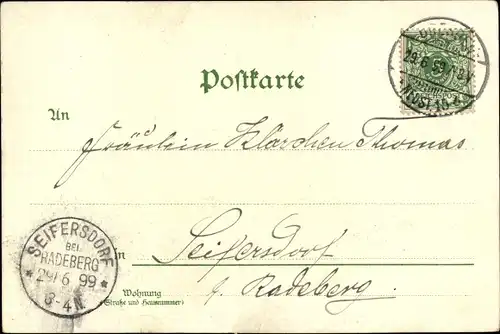 Postkarte
29.6.99
An
Fräulein Klärchen Thomas
SEIFERSDORF
BEI
RADEBERG
* 29/6 99 *
3-4 N.
in
Seifersdorf
Wohnung
(Straße und Hausnummer)
b. Radeberg.